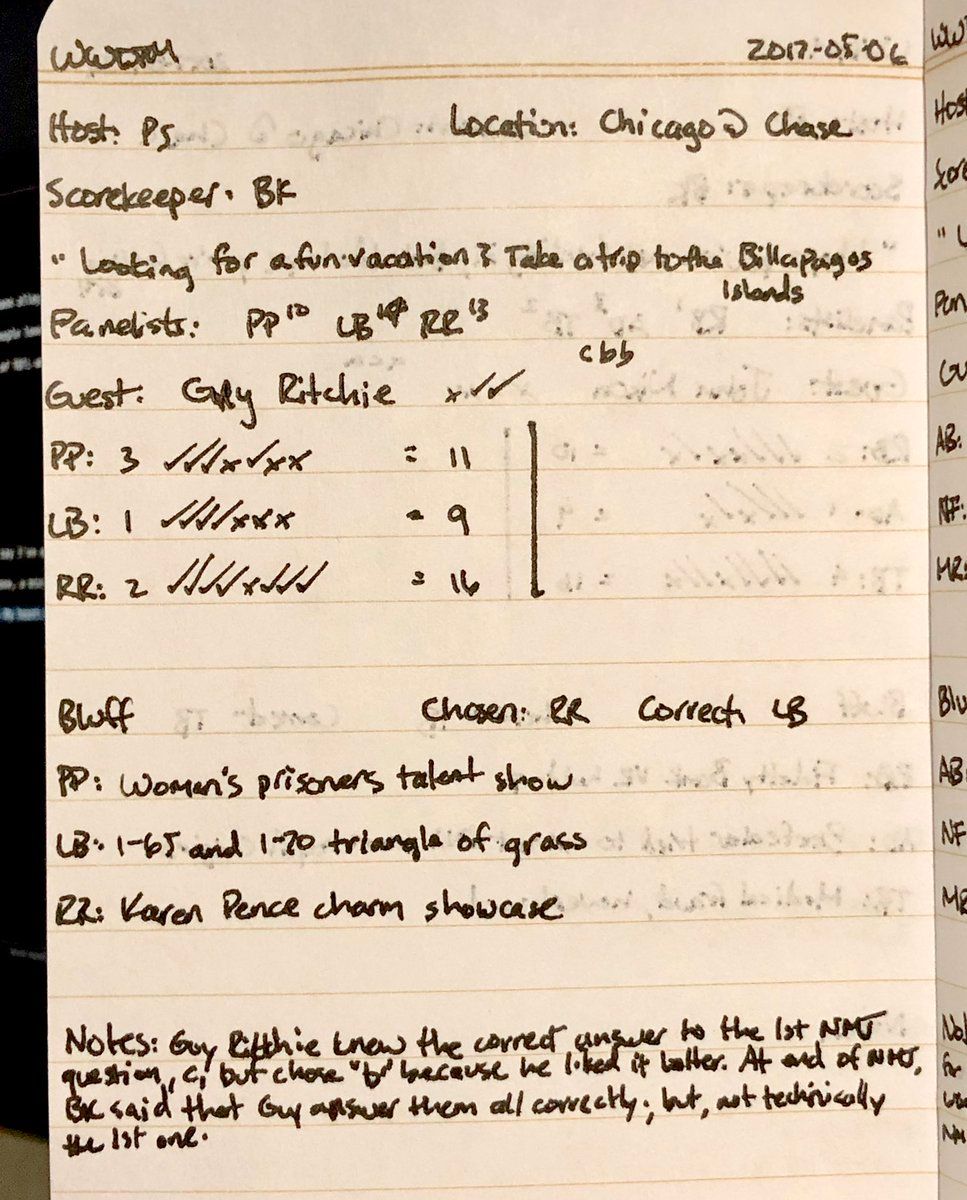 WWDTM 2017-05-06
Host: PS Location: Chicago @ Chase
Scorekeeper: BK
"Looking for a fun vacation? Take a trip to the Billapagos
Islands"
Panelists: PP¹⁰ LB RR¹³
c b b
Guest: Guy Ritchie x✓✓
PP: 3 ✓✓✓x✓xx = 11
LB: 1 ✓✓✓✓xxx = 9
RR: 2 ✓✓✓✓x✓✓✓ = 16
Bluff Chosen: RR Correct: LB
PP: Women's prisoners talent show
LB: I-65 and I-70 triangle of grass
RR: Karen Pence charm showcase
Notes: Guy Ritchie knew the correct answer to the 1st NMJ
question, c, but chose "b" because he liked it better. At end of NMJ,
BK said that Guy answer them all correctly; but, not technically
the 1st one.
WW
Host
Score
"L
Pan
Gu
AB:
NF:
MR:
Blu
AB:
NF
MR
Not
for
NM